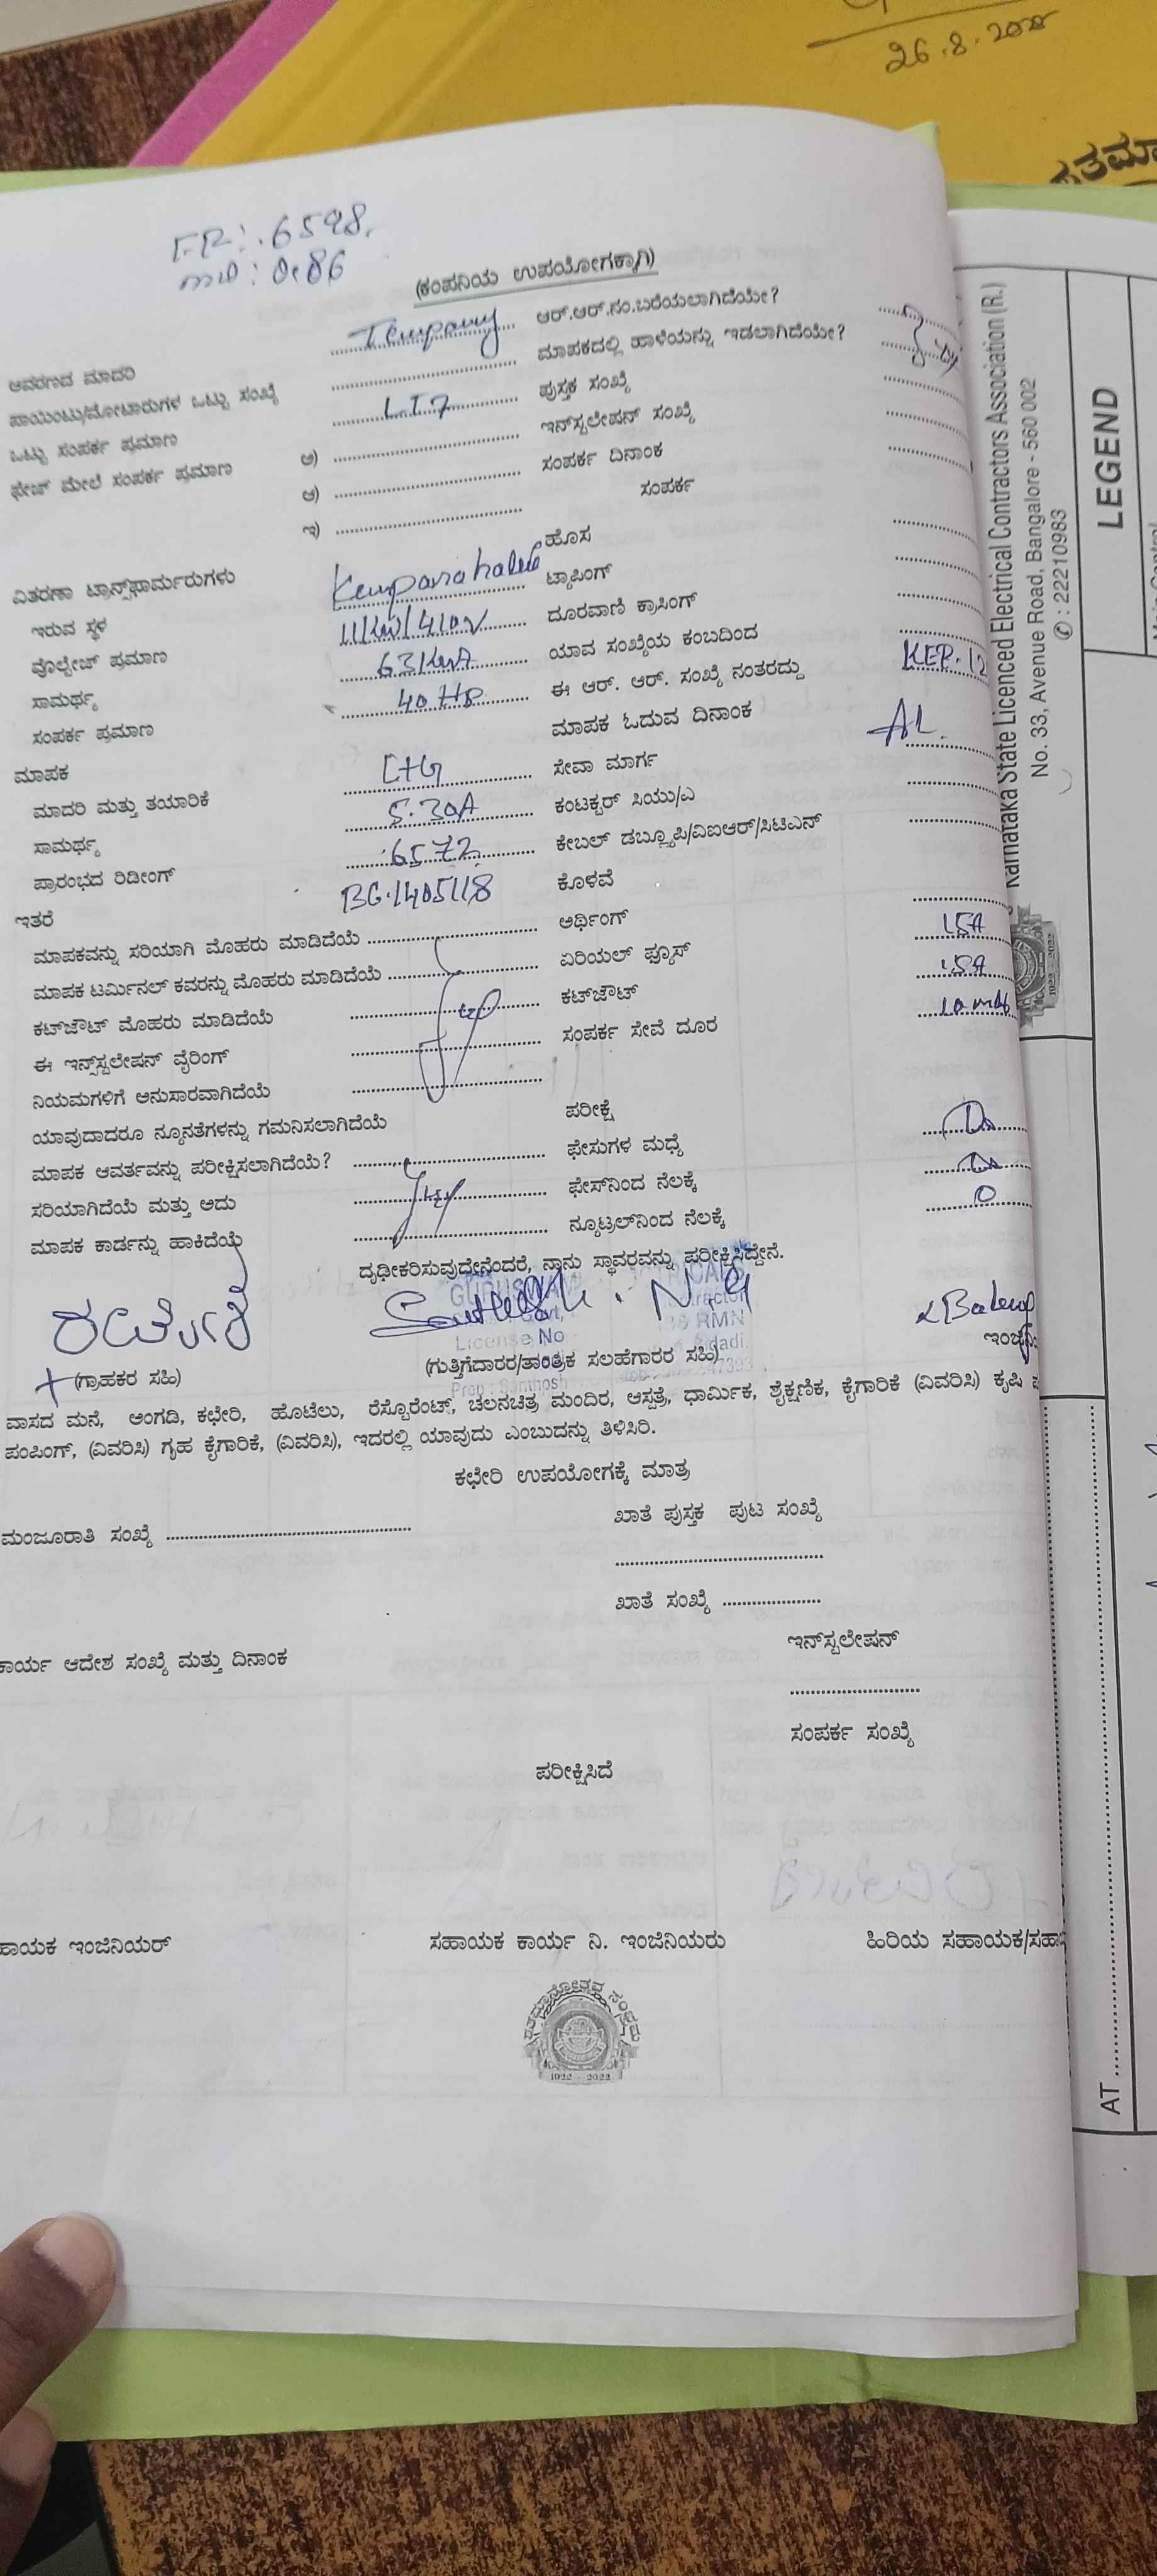 26.8.20
ಶತಮಾ
F.R: 6598.
MD: 0.86
(ಕಂಪನಿಯ ಉಪಯೋಗಕ್ಕಾಗಿ)
ಆವರಣದ ಮಾದರಿ ಆರ್.ಆರ್.ನಂ.ಬರೆಯಲಾಗಿದೆಯೇ?
ಪಾಯಿಂಟು/ಮೋಟಾರುಗಳ ಒಟ್ಟು ಸಂಖ್ಯೆ ಮಾಪಕದಲ್ಲಿ ಹಾಳೆಯನ್ನು ಇಡಲಾಗಿದೆಯೇ?
ಒಟ್ಟು ಸಂಪರ್ಕ ಪ್ರಮಾಣ LT7 ಪುಸ್ತಕ ಸಂಖ್ಯೆ
ಫೇಜ್ ಮೇಲೆ ಸಂಪರ್ಕ ಪ್ರಮಾಣ ಅ) ಇನ್‌ಸ್ಟಲೇಷನ್ ಸಂಖ್ಯೆ
ಆ) ಸಂಪರ್ಕ ದಿನಾಂಕ
ಇ) ಸಂಪರ್ಕ
ವಿತರಣಾ ಟ್ರಾನ್ಸ್‌ಫಾರ್ಮರುಗಳು ಹೊಸ
ಇರುವ ಸ್ಥಳ ಟ್ಯಾಪಿಂಗ್
ವೊಲ್ಟೇಜ್ ಪ್ರಮಾಣ 11/KV/410V ದೂರವಾಣಿ ಕ್ರಾಸಿಂಗ್
ಸಾಮರ್ಥ್ಯ 63KVA ಯಾವ ಸಂಖ್ಯೆಯ ಕಂಬದಿಂದ
ಸಂಪರ್ಕ ಪ್ರಮಾಣ 40 HP ಈ ಆರ್. ಆರ್. ಸಂಖ್ಯೆ ನಂತರದ್ದು KEP.12
ಮಾಪಕ ಮಾಪಕ ಓದುವ ದಿನಾಂಕ
ಮಾದರಿ ಮತ್ತು ತಯಾರಿಕೆ L+G ಸೇವಾ ಮಾರ್ಗ AL.
ಸಾಮರ್ಥ್ಯ 5.30A ಕಂಟಕ್ಟರ್ ಸಿಯು/ಎ
ಪ್ರಾರಂಭದ ರಿಡೀಂಗ್ 6572 ಕೇಬಲ್ ಡಬ್ಲ್ಯೂಪಿ/ವಿಐಆರ್/ಸಿಟಿಎನ್
ಇತರೆ BG.1405118 ಕೊಳವೆ
ಮಾಪಕವನ್ನು ಸರಿಯಾಗಿ ಮೊಹರು ಮಾಡಿದೆಯೆ ಅರ್ಥಿಂಗ್
ಮಾಪಕ ಟರ್ಮಿನಲ್ ಕವರನ್ನು ಮೊಹರು ಮಾಡಿದೆಯೆ ಏರಿಯಲ್ ಫ್ಯೂಸ್ 15A
ಕಟ್‌ಜೌಟ್ ಮೊಹರು ಮಾಡಿದೆಯೆ ಕಟ್‌ಜೌಟ್ 15A
ಈ ಇನ್ಸ್‌ಸ್ಟಲೇಷನ್ ವೈರಿಂಗ್ ಸಂಪರ್ಕ ಸೇವೆ ದೂರ
ನಿಯಮಗಳಿಗೆ ಅನುಸಾರವಾಗಿದೆಯೆ
ಯಾವುದಾದರೂ ನ್ಯೂನತೆಗಳನ್ನು ಗಮನಿಸಲಾಗಿದೆಯೆ ಪರೀಕ್ಷೆ
ಮಾಪಕ ಆವರ್ತವನ್ನು ಪರೀಕ್ಷಿಸಲಾಗಿದೆಯೆ? ಫೇಸುಗಳ ಮಧ್ಯೆ
ಸರಿಯಾಗಿದೆಯೆ ಮತ್ತು ಅದು ಫೇಸ್‌ನಿಂದ ನೆಲಕ್ಕೆ
ಮಾಪಕ ಕಾರ್ಡನ್ನು ಹಾಕಿದೆಯೆ ನ್ಯೂಟ್ರಲ್‌ನಿಂದ ನೆಲಕ್ಕೆ
ದೃಢೀಕರಿಸುವುದೇನೆಂದರೆ, ನಾನು ಸ್ಥಾವರವನ್ನು ಪರೀಕ್ಷಿಸಿದ್ದೇನೆ.
License No
(ಗ್ರಾಹಕರ ಸಹಿ) (ಗುತ್ತಿಗೆದಾರರ/ತಾಂತ್ರಿಕ ಸಲಹೆಗಾರರ ಸಹಿ)
ವಾಸದ ಮನೆ, ಅಂಗಡಿ, ಕಛೇರಿ, ಹೊಟೆಲು, ರೆಸ್ಟೊರೆಂಟ್, ಚಲನಚಿತ್ರ ಮಂದಿರ, ಆಸ್ಪತ್ರೆ, ಧಾರ್ಮಿಕ, ಶೈಕ್ಷಣಿಕ, ಕೈಗಾರಿಕೆ (ವಿವರಿಸಿ) ಕೃಷಿ
ಪಂಪಿಂಗ್, (ವಿವರಿಸಿ) ಗೃಹ ಕೈಗಾರಿಕೆ, (ವಿವರಿಸಿ), ಇದರಲ್ಲಿ ಯಾವುದು ಎಂಬುದನ್ನು ತಿಳಿಸಿರಿ.
ಕಛೇರಿ ಉಪಯೋಗಕ್ಕೆ ಮಾತ್ರ
ಮಂಜೂರಾತಿ ಸಂಖ್ಯೆ ಖಾತೆ ಪುಸ್ತಕ ಪುಟ ಸಂಖ್ಯೆ
ಖಾತೆ ಸಂಖ್ಯೆ
ಕಾರ್ಯ ಆದೇಶ ಸಂಖ್ಯೆ ಮತ್ತು ದಿನಾಂಕ ಇನ್‌ಸ್ಟಲೇಷನ್
ಸಂಪರ್ಕ ಸಂಖ್ಯೆ
ಪರೀಕ್ಷಿಸಿದೆ
ಹಾಯಕ ಇಂಜಿನಿಯರ್ ಸಹಾಯಕ ಕಾರ್ಯ ನಿ. ಇಂಜಿನಿಯರು ಹಿರಿಯ ಸಹಾಯಕ/ಸಹಾ
ಶತಮಾನೋತ್ಸವ ಸಂಭ್ರಮ
1922 - 2022
Karnataka State Licenced Electrical Contractors Association (R.)
No. 33, Avenue Road, Bangalore - 560 002
✆ : 22210983
1922 - 2022
LEGEND
AT